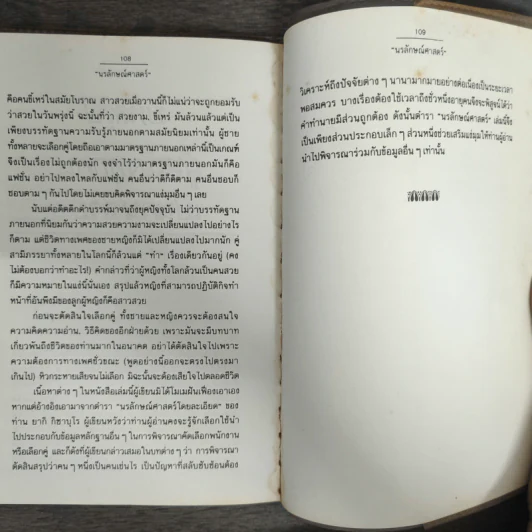 108
"นรลักษณ์ศาสตร์"
คือคนขี้เหร่ในสมัยโบราณ สาวสวยเมื่อวานนี้ก็ไม่แน่ว่าจะถูกยอมรับ
ว่าสวยในวันพรุ่งนี้ ฉะนั้นที่ว่า สวยงาม, ขี้เหร่ มันล้วนแล้วแต่เป็น
เพียงบรรทัดฐานความรับรู้ภายนอกตามสมัยนิยมเท่านั้น ผู้ชาย
ทั้งหลายจะเลือกคู่โดยถือเอาตามมาตรฐานภายนอกเหล่านี้เป็นเกณฑ์
จึงเป็นเรื่องไม่ถูกต้องนัก จงจำไว้ว่ามาตรฐานภายนอกมันก็คือ
แฟชั่น อย่าไปหลงไหลกับแฟชั่น คนอื่นว่าดีก็ดีตาม คนอื่นชอบก็
ชอบตาม ๆ กันไปโดยไม่เคยขบคิดพิจารณาแง่มุมอื่น ๆ เลย
นับแต่อดีตดึกดำบรรพ์มาจนถึงยุคปัจจุบัน ไม่ว่าบรรทัดฐาน
ภายนอกที่นิยมกันว่าความสวยความงามจะเปลี่ยนแปลงไปอย่างไร
ก็ตาม แต่ชีวิตทางเพศของชายหญิงก็มิได้เปลี่ยนแปลงไปมากนัก คู่
สามีภรรยาทั้งหลายในโลกนี้ก็ล้วนแต่ "ทำ" เรื่องเดียวกันอยู่ (คง
ไม่ต้องบอกว่าทำอะไร!) คำกล่าวที่ว่าผู้หญิงทั้งโลกล้วนเป็นคนสวย
ก็มีความหมายในแง่นี้นั่นเอง สรุปแล้วหญิงที่สามารถปฏิบัติกิจทำ
หน้าที่อันพึงมีของลูกผู้หญิงก็คือสาวสวย
ก่อนจะตัดสินใจเลือกคู่ ทั้งชายและหญิงควรจะต้องสนใจ
ความคิดความอ่าน, วิธีคิดของอีกฝ่ายด้วย เพราะมันจะมีบทบาท
เกี่ยวพันถึงชีวิตของท่านมากในอนาคต อย่าได้ตัดสินใจไปเพราะ
ความต้องการทางเพศชั่วขณะ (พูดอย่างนี้ออกจะตรงไปตรงมา
เกินไป) หิวกระหายเสียจนไม่เลือก มิฉะนั้นจะต้องเสียใจไปตลอดชีวิต
เนื้อหาต่าง ๆ ในหนังสือเล่มนี้ผู้เขียนมิได้โมเมฝันเฟื่องเอาเอง
หากแต่อ้างอิงเอามาจากตำรา "นรลักษณ์ศาสตร์โดยละเอียด" ของ
ท่าน ยากิ กิซาบุโร ผู้เขียนหวังว่าท่านผู้อ่านคงจะรู้จักเลือกใช้นำ
ไปประกอบกับข้อมูลหลักฐานอื่น ๆ ในการพิจารณาคัดเลือกพนักงาน
หรือเลือกคู่ และก็ดังที่ผู้เขียนกล่าวเสมอในบทต่าง ๆ ว่า การพิจารณา
ตัดสินสรุปว่าคน ๆ หนึ่งเป็นคนเช่นไร เป็นปัญหาที่สลับซับซ้อนต้อง
109
"นรลักษณ์ศาสตร์"
วิเคราะห์ถึงปัจจัยต่าง ๆ นานามากมายอย่างต่อเนื่องเป็นระยะเวลา
พอสมควร บางเรื่องต้องใช้เวลาถึงชั่วหนึ่งอายุคนจึงจะพิสูจน์ได้ว่า
คำทำนายมีส่วนถูกต้อง ดังนั้นตำรา "นรลักษณ์ศาสตร์" เล่มนี้จึง
เป็นเพียงส่วนประกอบเล็ก ๆ ส่วนหนึ่งช่วยเสริมแง่มุมให้ท่านผู้อ่าน
นำไปพิจารณาร่วมกับข้อมูลอื่น ๆ เท่านั้น